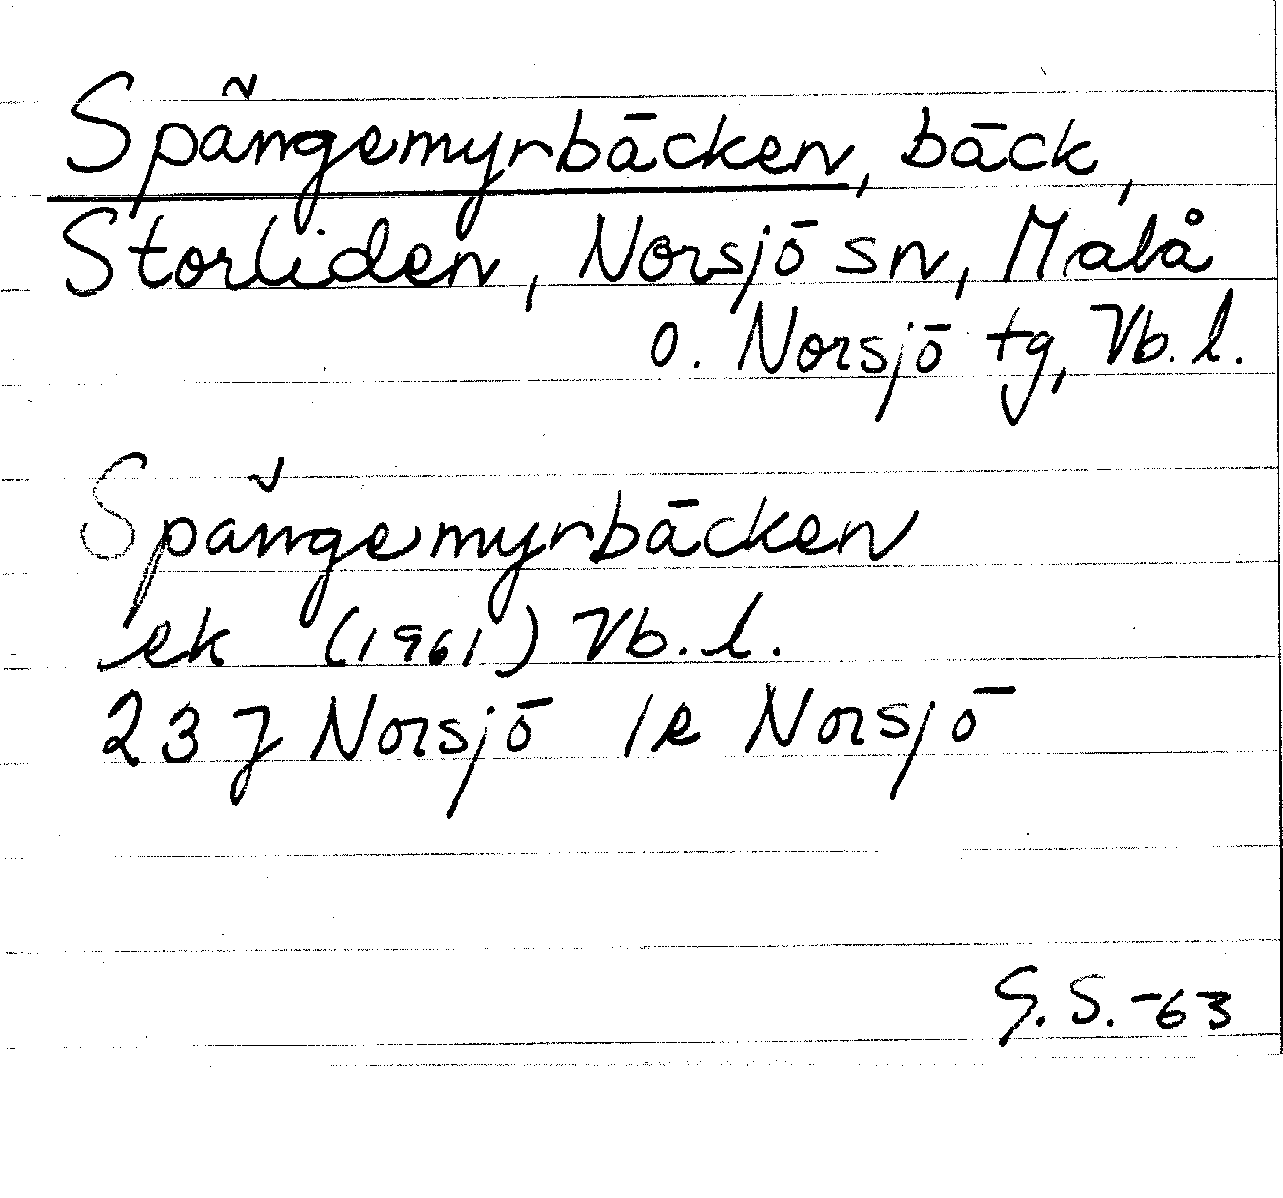 Spängemyrbäcken, bäck,
Storliden, Norsjö sn, Malå
o. Norsjö tg, Vb. l.
Spängemyrbäcken
ek (1961) Vb. l.
23 J Norsjö 1e Norsjö
G. S. -63